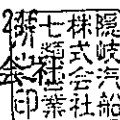 隠岐汽船
株式会社
七類営業
会社